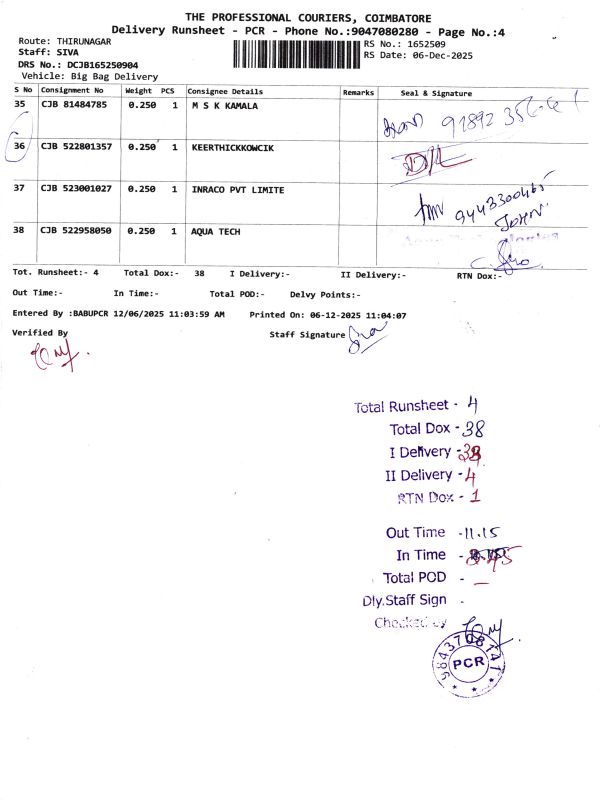 THE PROFESSIONAL COURIERS, COIMBATORE
Delivery Runsheet - PCR - Phone No.:9047080280 - Page No.:4
Route: THIRUNAGAR
RS No.: 1652509
Staff: SIVA
RS Date: 06-Dec-2025
DRS No.: DCJB165250904
Vehicle: Big Bag Delivery
S No Consignment No Weight PCS Consignee Details Remarks Seal & Signature
35 CJB 81484785 0.250 1 M S K KAMALA
36 CJB 522801357 0.250 1 KEERTHICKKOWCIK
D/L
37 CJB 523001027 0.250 1 INRACO PVT LIMITE
9443300465
JOHN
38 CJB 522958050 0.250 1 AQUA TECH
Tot. Runsheet:- 4 Total Dox:- 38 I Delivery:- II Delivery:- RTN Dox:-
Out Time:- In Time:- Total POD:- Delvy Points:-
Entered By :BABUPCR 12/06/2025 11:03:59 AM Printed On: 06-12-2025 11:04:07
Verified By Staff Signature
Total Runsheet - 4
Total Dox - 38
I Delivery -
II Delivery - 4
RTN Dox - 1
Out Time - 11.15
In Time -
Total POD - –
Dly.Staff Sign -
Checked by
9843708147
PCR